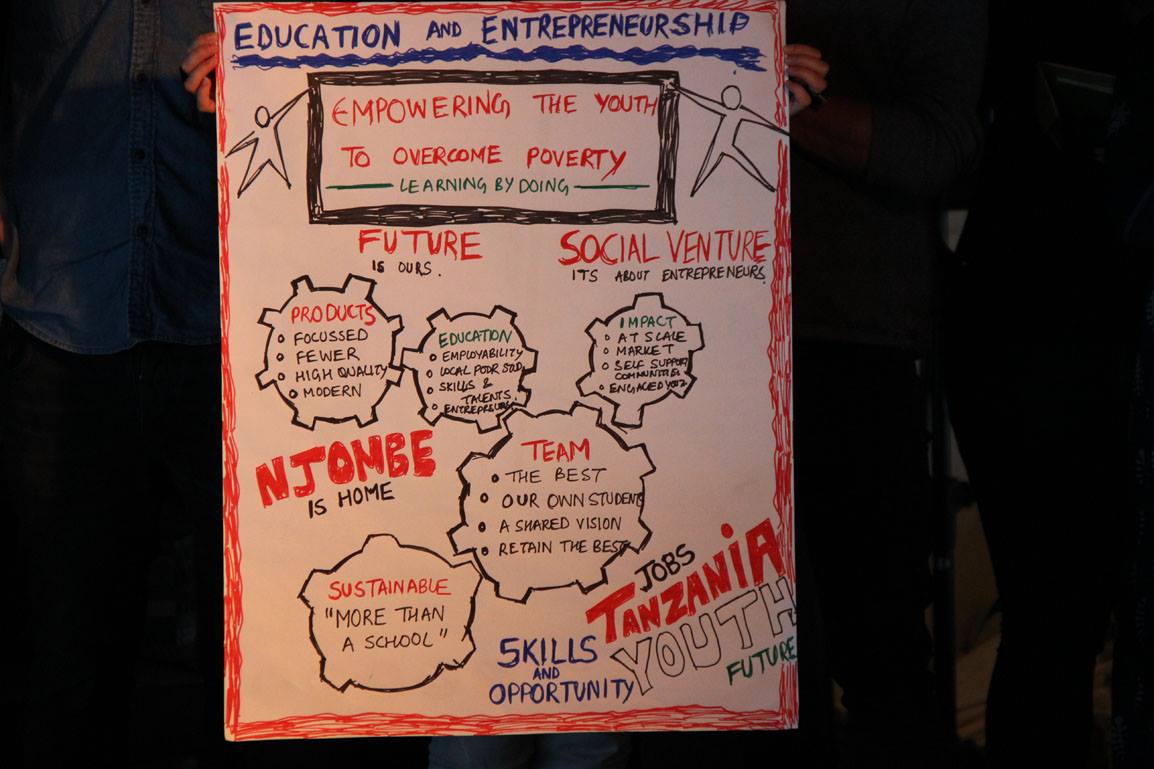 EDUCATION AND ENTREPRENEURSHIP
EMPOWERING THE YOUTH
TO OVERCOME POVERTY
LEARNING BY DOING
FUTURE
IS OURS.
SOCIAL VENTURE
ITS ABOUT ENTREPRENEURS
PRODUCTS
FOCUSSED
FEWER
HIGH QUALITY
MODERN
EDUCATION
EMPLOYABILITY
LOCAL POOR STUD
SKILLS &
TALENTS
ENTREPRENEURS
IMPACT
AT SCALE
MARKET
SELF SUPPORT
COMMUNITIES
ENGAGED
NJOMBE
IS HOME
TEAM
THE BEST
OUR OWN STUDENTS
A SHARED VISION
RETAIN THE BEST
SUSTAINABLE
"MORE THAN
A SCHOOL"
JOBS
TANZANiA
YOUTH
FUTURE
SKILLS
AND
OPPORTUNITY